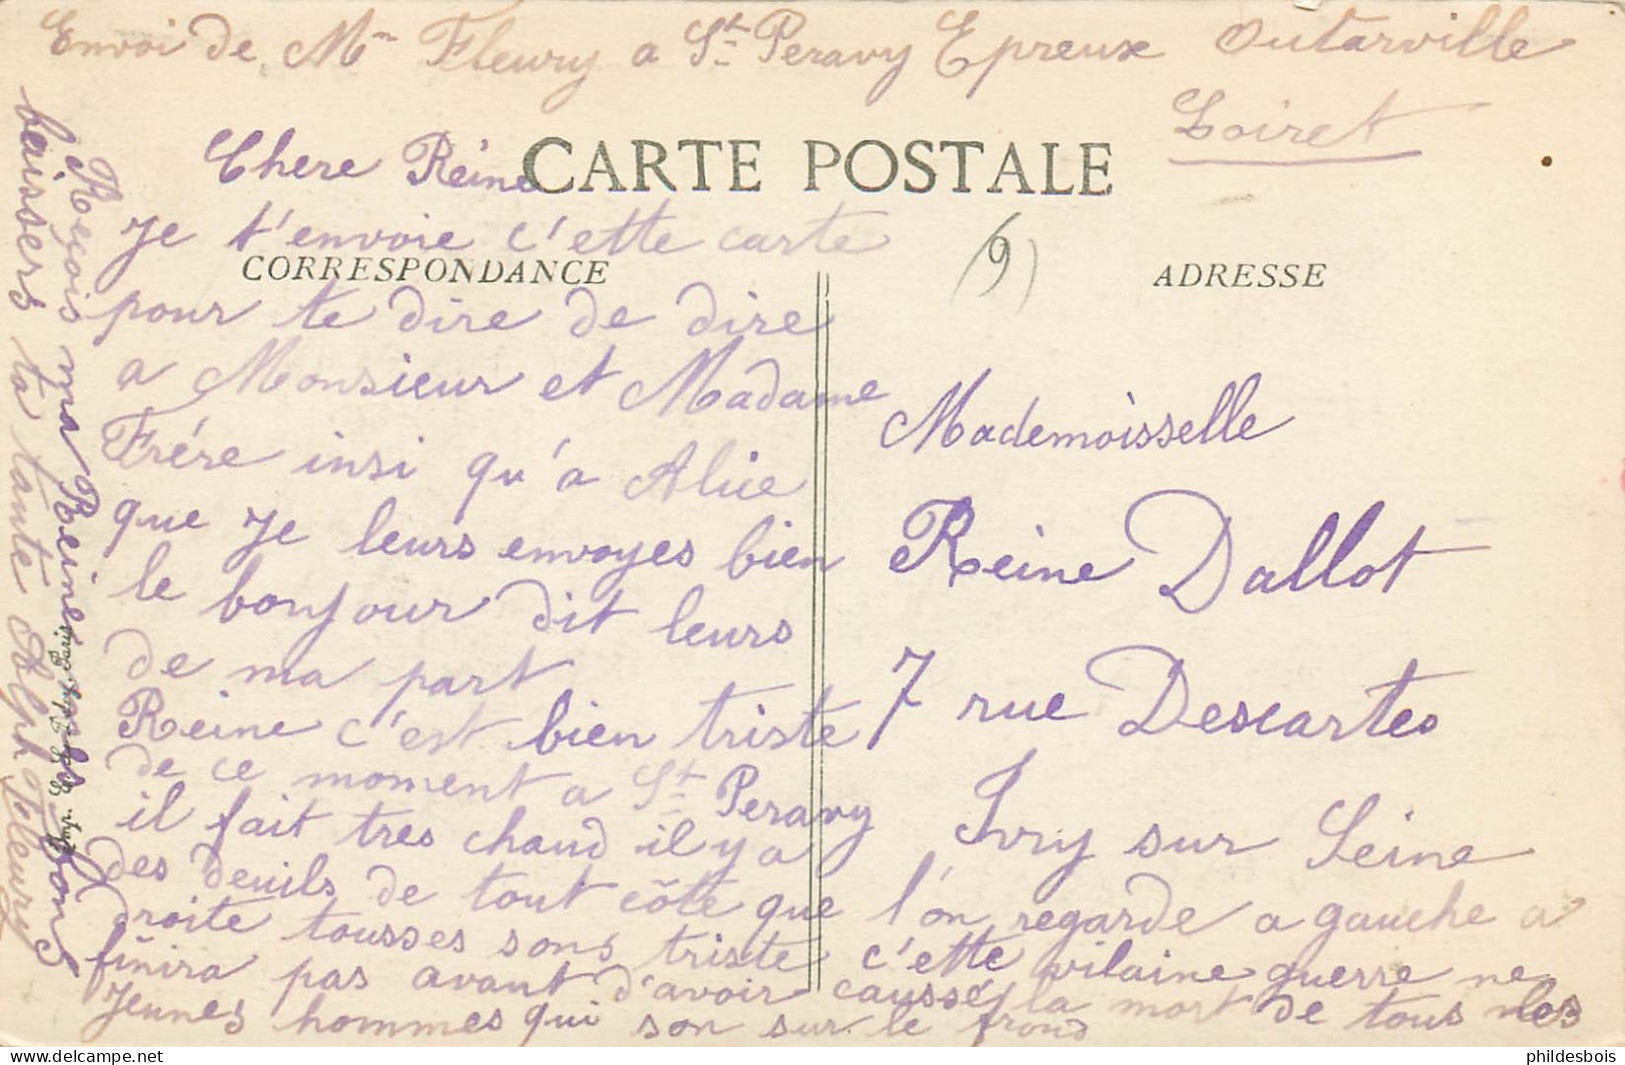 Envoi de Mme Fleury a St Peravy Epreux Outarville
Loiret
CARTE POSTALE
CORRESPONDANCE
ADRESSE
(9)
Chere Reine
Je t'envoie c'ette carte
pour te dire de dire
a Monsieur et Madame
Frére insi qu'a Alice
que Je leurs envoyes bien
le bonjour dit leurs
de ma part
Reine c'est bien triste
de ce moment a St Peravy
il fait tres chaud il y a
des deuils de tout côte que l'on regarde a gauche a
droite tousses sons triste c'ette vilaine guerre ne
finira pas avant d'avoir caussé la mort de tous les
Jeunes hommes qui son sur le frond
Reçois ma Reine bons
baissers ta tante Alph Fleury
Mademoisselle
Reine Dallot
7 rue Descartes
Ivry sur Seine
phildesbois